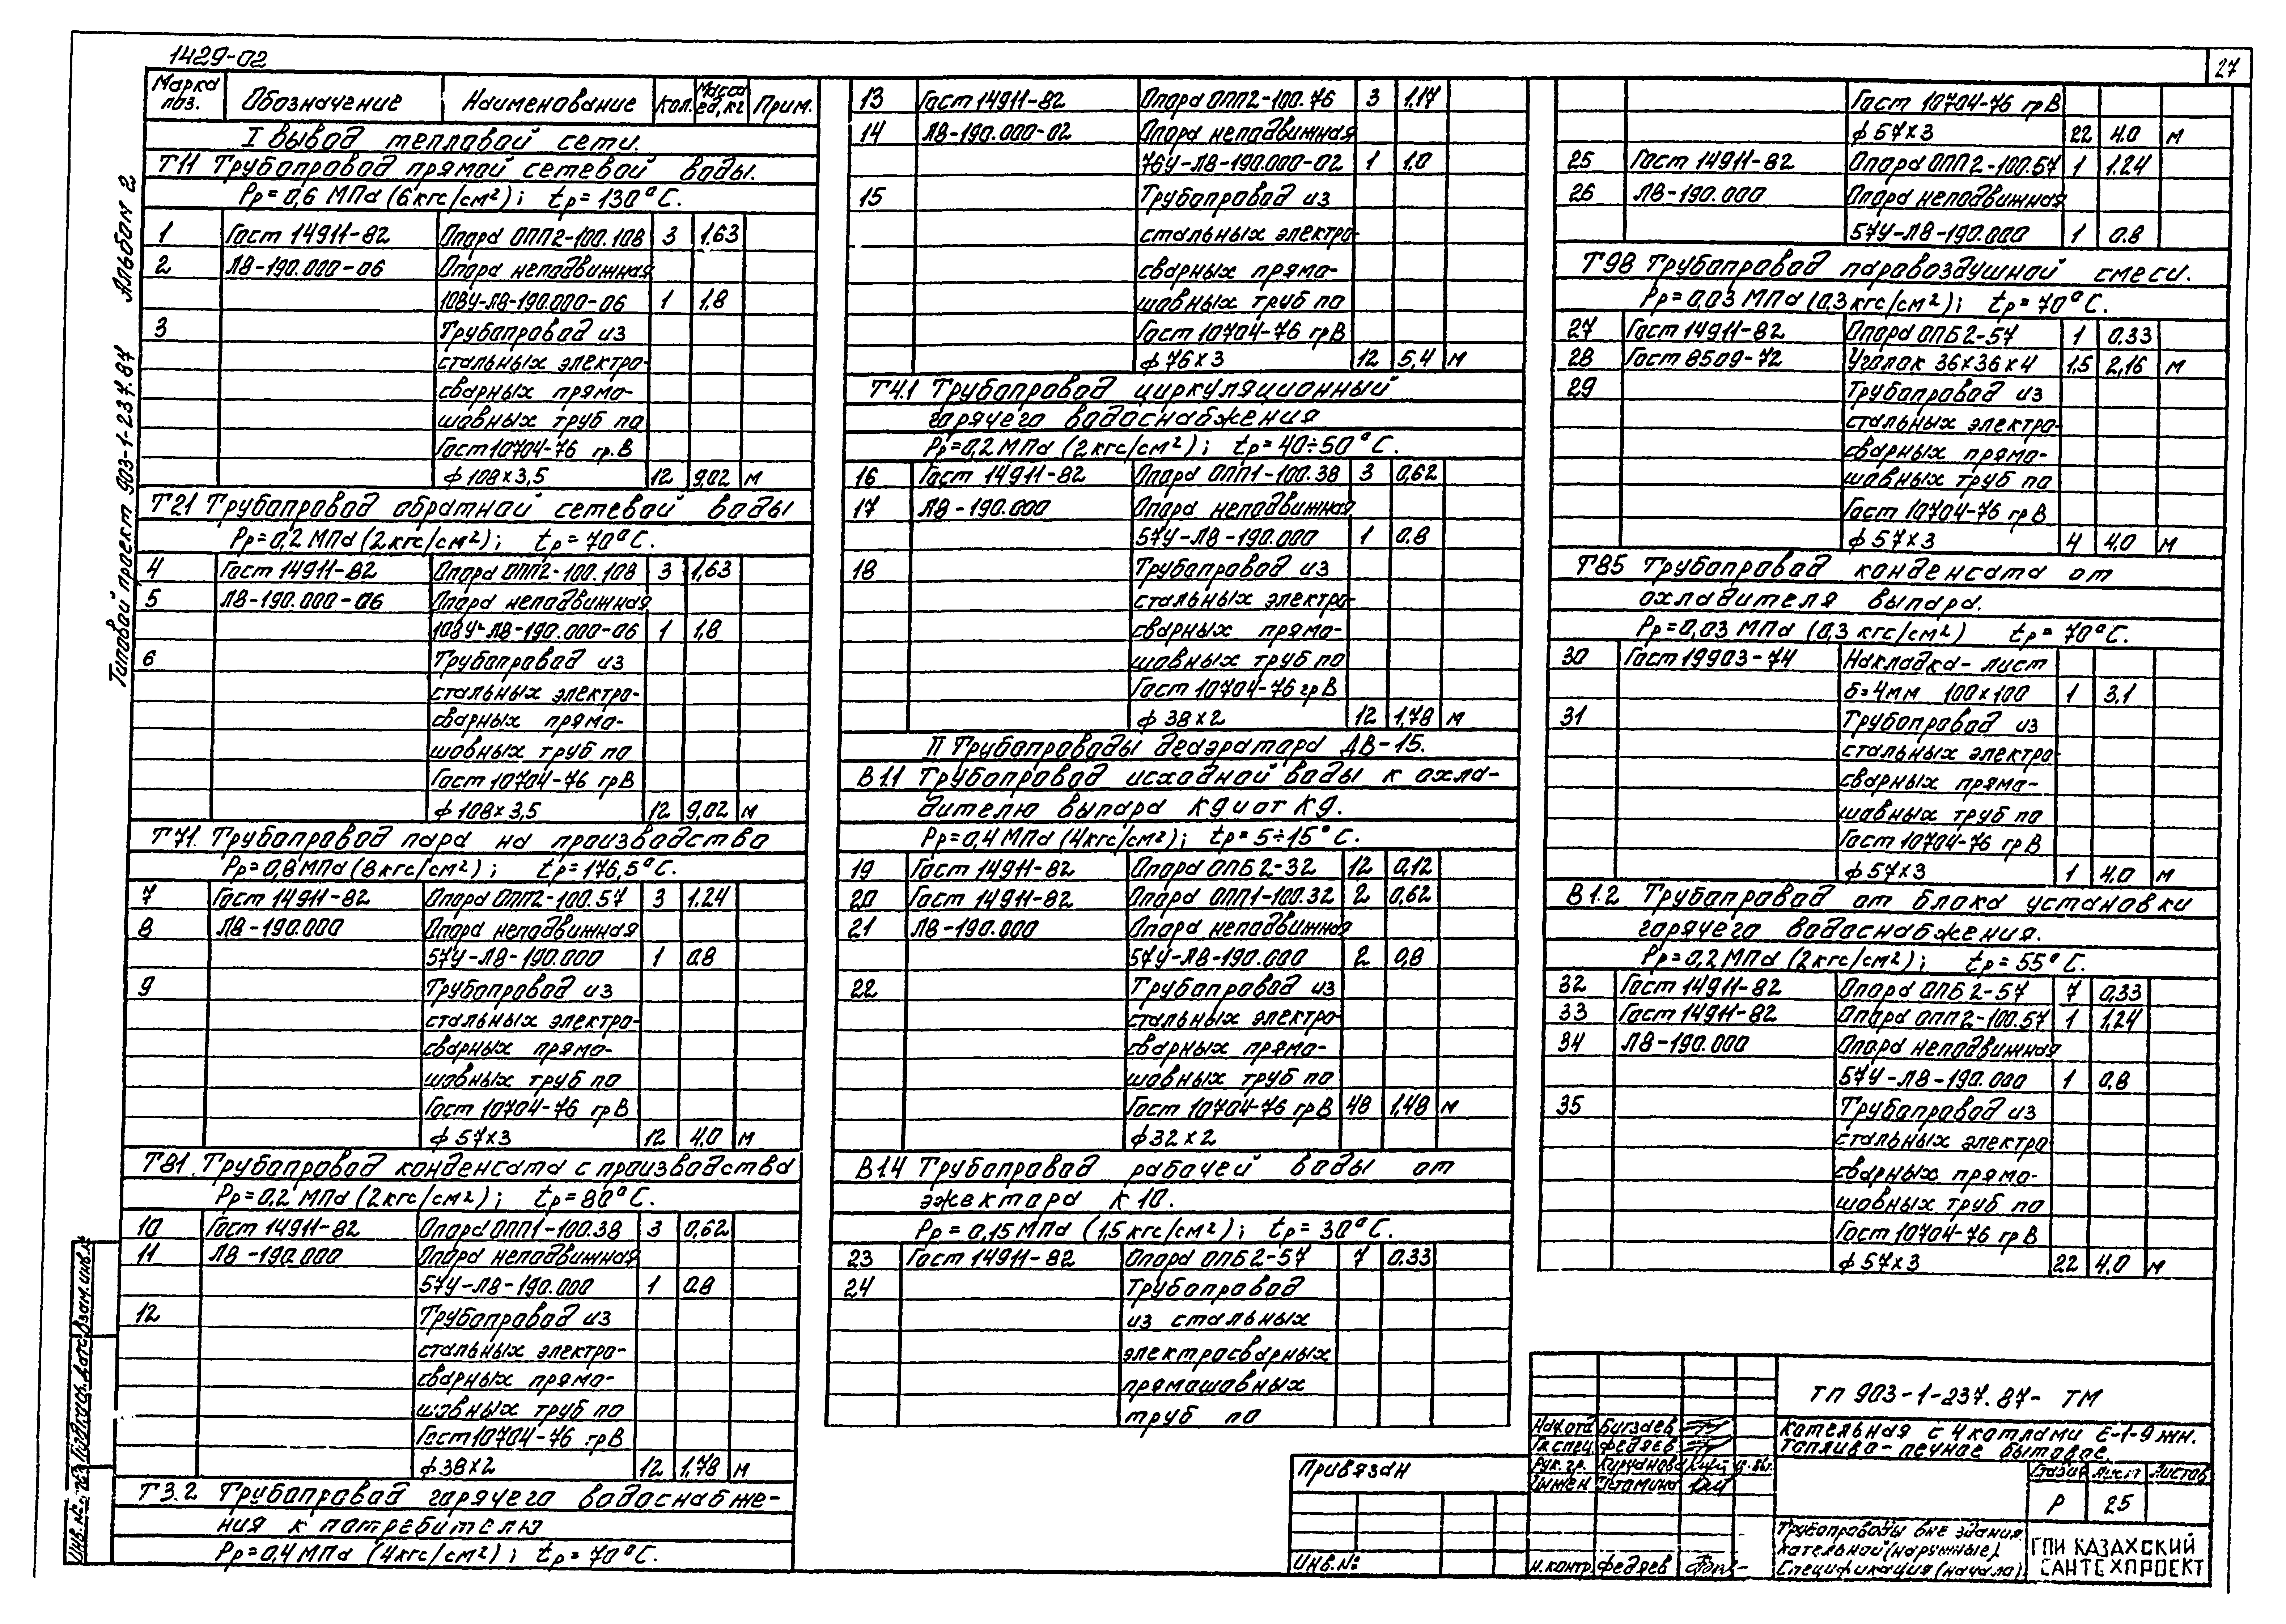 1429-02
27
Марка поз. Обозначение Наименование Кол. Масса ед, кг Прим.
I Вывод тепловой сети.
Т11 Трубопровод прямой сетевой воды.
Рр=0,6 МПа (6кгс/см²); tр=130°С.
1 Гост 14911-82 Опора ОПП2-100.108 3 1,63
2 Л8-190.000-06 Опора неподвижная
108У-Л8-190.000-06 1 1,8
3 Трубопровод из
стальных электро-
сварных прямо-
шовных труб по
Гост 10704-76 гр.В
ф108×3,5 12 9,02 м
Т21 Трубопровод обратной сетевой воды
Рр=0,2 МПа (2кгс/см²); tр=70°С.
4 Гост 14911-82 Опора ОПП2-100.108 3 1,63
5 Л8-190.000-06 Опора неподвижная
108У-Л8-190.000-06 1 1,8
6 Трубопровод из
стальных электро-
сварных прямо-
шовных труб по
Гост 10704-76 грВ
ф108×3,5 12 9,02 м
Т71. Трубопровод пара на производство
Рр=0,8 МПа (8кгс/см²); tр=176,5°С.
7 Гост 14911-82 Опора ОПП2-100.57 3 1.24
8 Л8-190.000 Опора неподвижная
57У-Л8-190.000 1 0.8
9 Трубопровод из
стальных электро-
сварных прямо-
шовных труб по
Гост 10704-76 грВ
ф57×3 12 4.0 м
Т81. Трубопровод конденсата с производства
Рр=0,2 МПа (2кгс/см²); tр=80°С.
10 Гост 14911-82 Опора ОПП1-100.38 3 0,62
11 Л8-190.000 Опора неподвижная
57У-Л8-190.000 1 0.8
12 Трубопровод из
стальных электро-
сварных прямо-
шовных труб по
Гост 10704-76 грВ
ф38×2 12 1,78 м
Т3.2 Трубопровод горячего водоснабже-
ния к потребителю
Рр=0,4 МПа (4кгс/см²); tр=70°С.
13 Гост 14911-82 Опора ОПП2-100.76 3 1,17
14 Л8-190.000-02 Опора неподвижная
76У-Л8-190.000-02 1 1.0
15 Трубопровод из
стальных электро-
сварных прямо-
шовных труб по
Гост 10704-76 грВ
ф76×3 12 5,4 м
Т4.1 Трубопровод циркуляционный
горячего водоснабжения
Рр=0,2 МПа (2кгс/см²); tр=40÷50°С.
16 Гост 14911-82 Опора ОПП1-100.38 3 0,62
17 Л8-190.000 Опора неподвижная
57У-Л8-190.000 1 0.8
18 Трубопровод из
стальных электро-
сварных прямо-
шовных труб по
Гост 10704-76 грВ
ф38×2 12 1,78 м
II Трубопроводы деаэратора ДВ-15.
В1.1 Трубопровод исходной воды к охла-
дителю выпара КД и от КД.
Рр=0,4 МПа (4кгс/см²); tр=5÷15°С.
19 Гост 14911-82 Опора ОПБ2-32 12 0,12
20 Гост 14911-82 Опора ОПП1-100.32 2 0,62
21 Л8-190.000 Опора неподвижная
57У-Л8-190.000 2 0,8
22 Трубопровод из
стальных электро-
сварных прямо-
шовных труб по
Гост 10704-76 грВ 48 1,48 м
ф32×2
В1.4 Трубопровод рабочей воды от
эжектора К10.
Рр=0,15 МПа (1,5кгс/см²); tр=30°С.
23 Гост 14911-82 Опора ОПБ2-57 7 0.33
24 Трубопровод
из стальных
электросварных
прямошовных
труб по
Гост 10704-76 грВ
ф57×3 22 4.0 м
25 Гост 14911-82 Опора ОПП2-100.57 1 1.24
26 Л8-190.000 Опора неподвижная
57У-Л8-190.000 1 0.8
Т98 Трубопровод паровоздушной смеси.
Рр=0,03 МПа (0,3кгс/см²); tр=70°С.
27 Гост 14911-82 Опора ОПБ2-57 1 0.33
28 Гост 8509-72 Уголок 36×36×4 1,5 2,16 м
29 Трубопровод из
стальных электро-
сварных прямо-
шовных труб по
Гост 10704-76 грВ
ф57×3 4 4,0 м
Т85 Трубопровод конденсата от
охладителя выпара.
Рр=0,03 МПа (0,3 кгс/см²) tр=70°С.
30 Гост 19903-74 Накладка-лист
б=4мм 100×100 1 3,1
31 Трубопровод из
стальных электро-
сварных прямо-
шовных труб по
Гост 10704-76 грВ
ф57×3 1 4.0 м
В1.2 Трубопровод от блока установки
горячего водоснабжения.
Рр=0,2 МПа (2кгс/см²); tр=55°С.
32 Гост 14911-82 Опора ОПБ2-57 7 0,33
33 Гост 14911-82 Опора ОПП2-100.57 1 1,24
34 Л8-190.000 Опора неподвижная
57У-Л8-190.000 1 0,8
35 Трубопровод из
стальных электро
сварных прямо-
шовных труб по
Гост 10704-76 грВ
ф57×3 22 4,0 м
Типовой проект 903-1-237.87 Альбом 2
Инв.№ Подпись, дата Взам.инв.№
Привязан
Инв.№
Нач.отд Бигзаев
Гл.спец. Федяев
Рук.гр.
Инжен
Н.контр Федяев
ТП 903-1-237.87- ТМ
Котельная с 4 котлами Е-1-9 жн.
Топливо-печное бытовое.
Стадия Лист Листов
Р 25
Трубопроводы вне здания
котельной (наружные)
Спецификация (начало)
ГПИ КАЗАХСКИЙ
САНТЕХПРОЕКТ